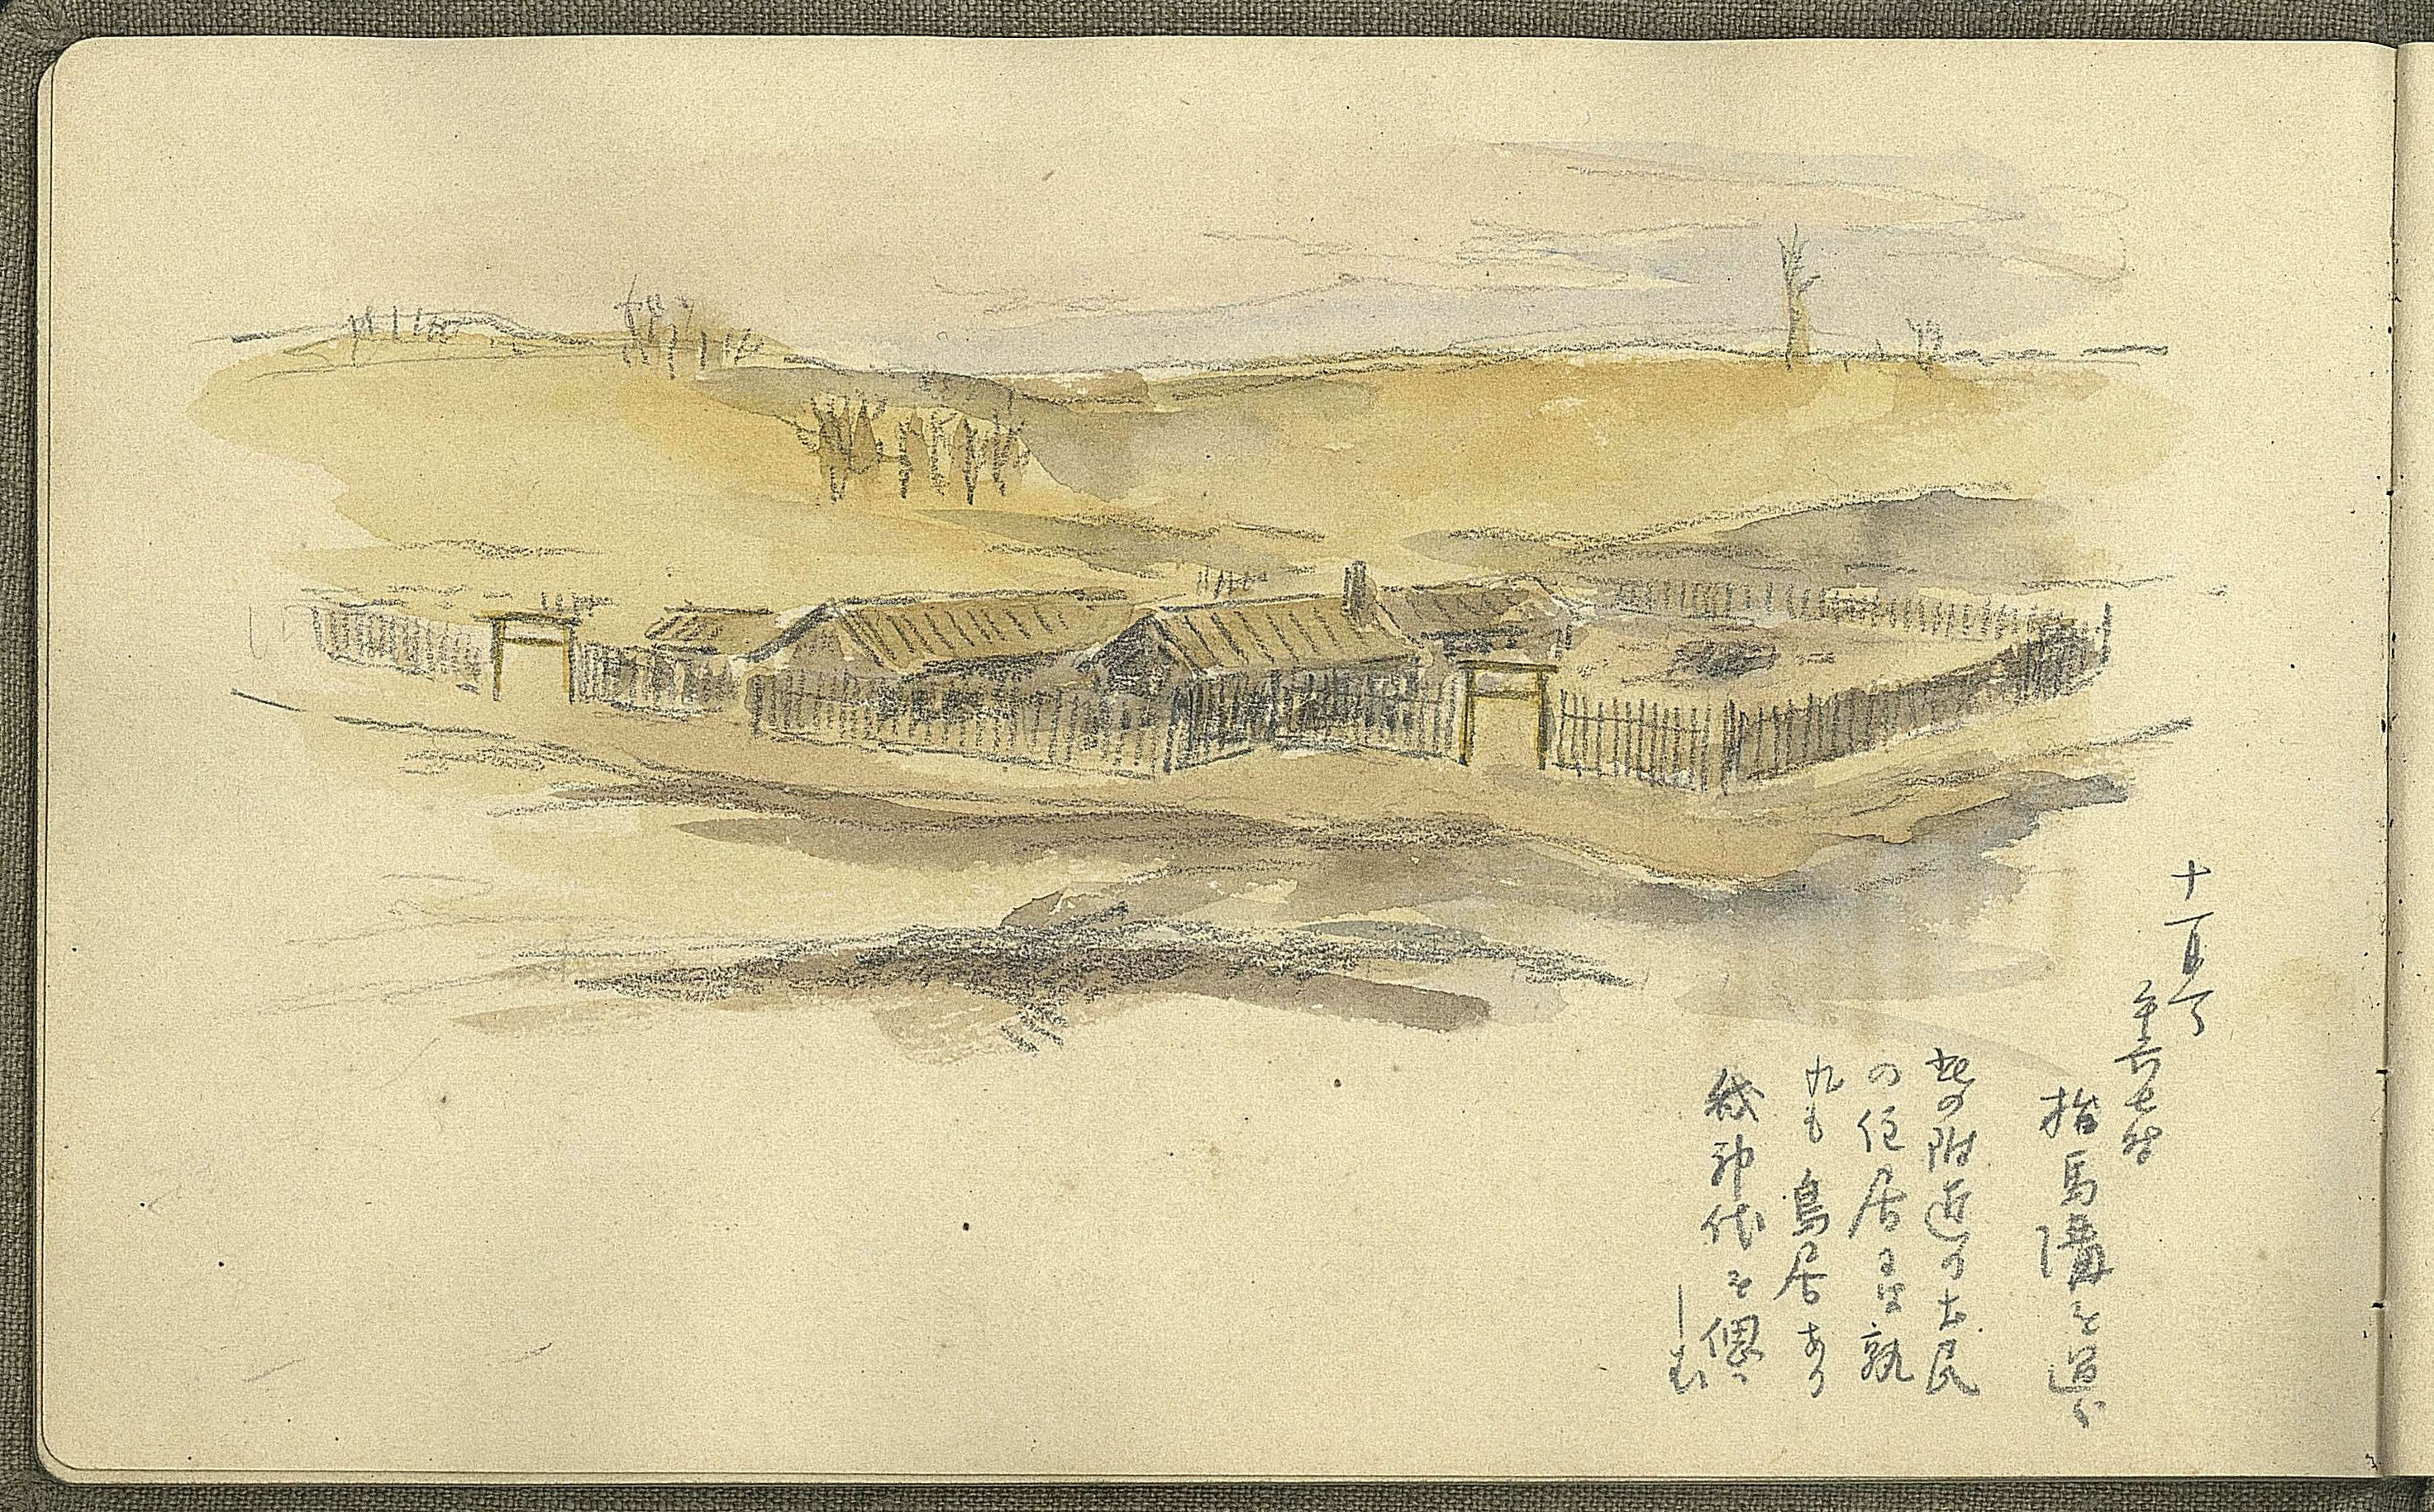 十一月今
午前七時
指馬溝を過ぐ
此の附近の土民
の住居には孰
れも鳥居あり
我神代を偲ば
しむ